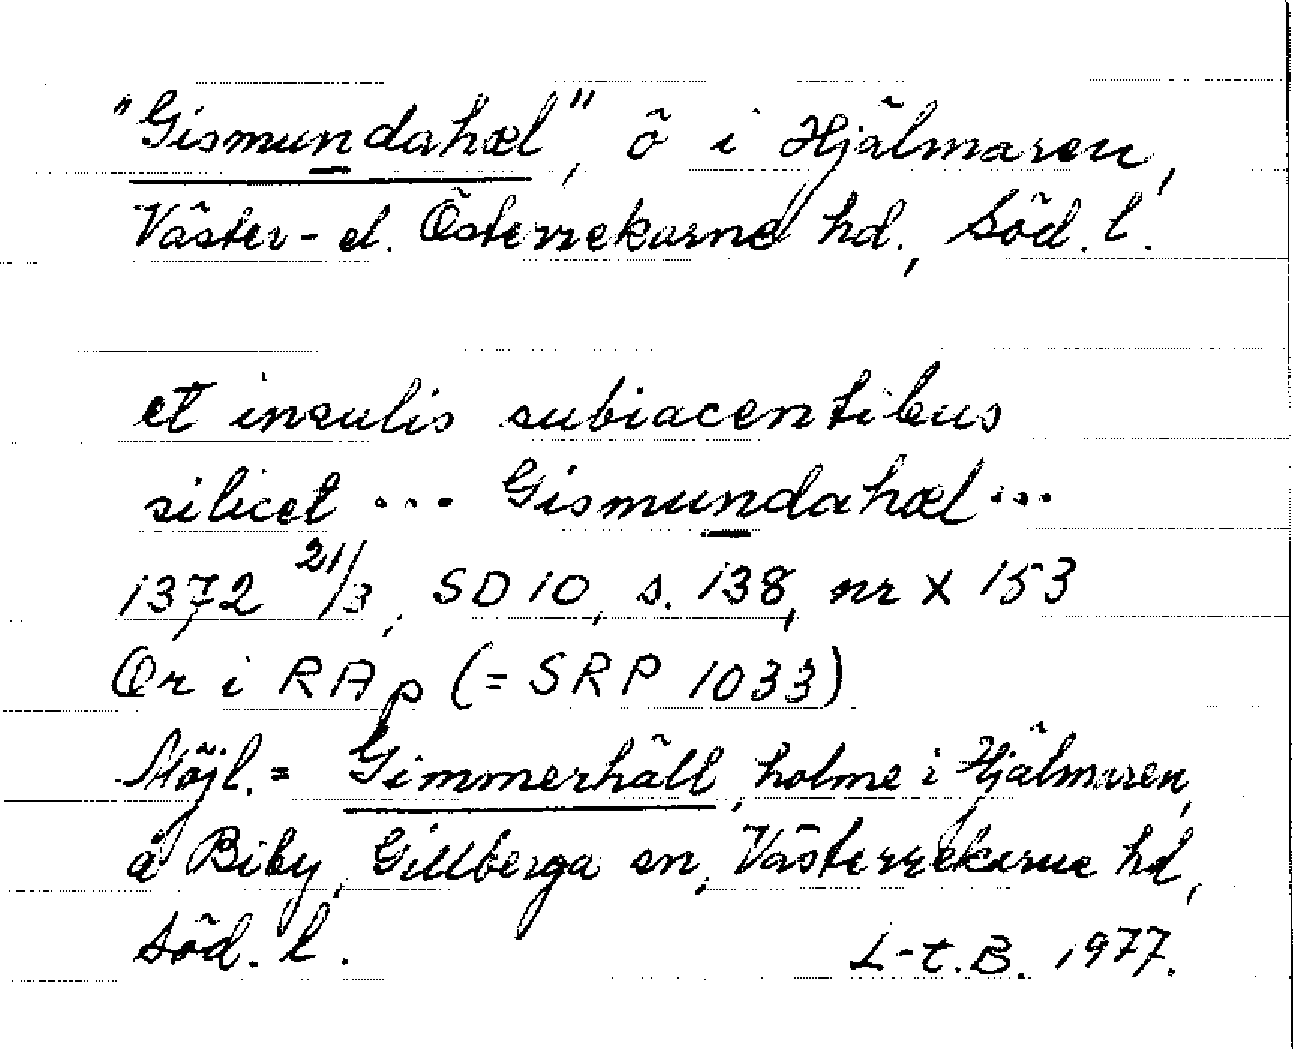 "Gismundahæl", ö i Hjälmaren,
Väster- el. Österrekarne hd., Söd. l.
et insulis subiacentibus
silicet ... Gismundahæl ...
1372 21/3, SD 10, s. 138, nr X 153
Or i RAp (= SRP 1033)
Möjl. = Gimmerhäll, holme i Hjälmaren,
å Biby, Gillberga sn, Västerrekarne hd,
Söd. l.
L-t.B. 1977.